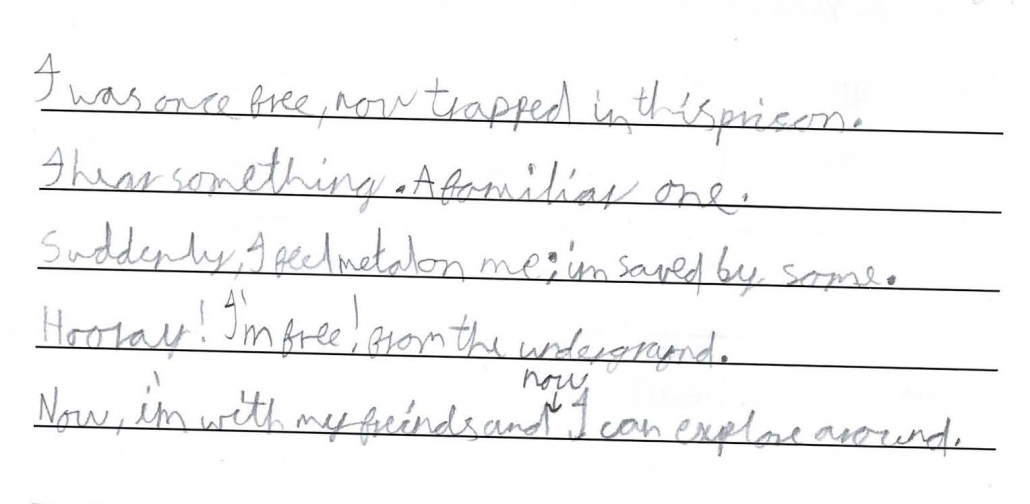 I was once free, now trapped in this prison.
I hear something. A familiar one.
Suddenly, I feel metal on me; i'm saved by some.
Hooray! I'm free! from the undergraynd.
now
Now, i'm with my freinds and I can explore around.